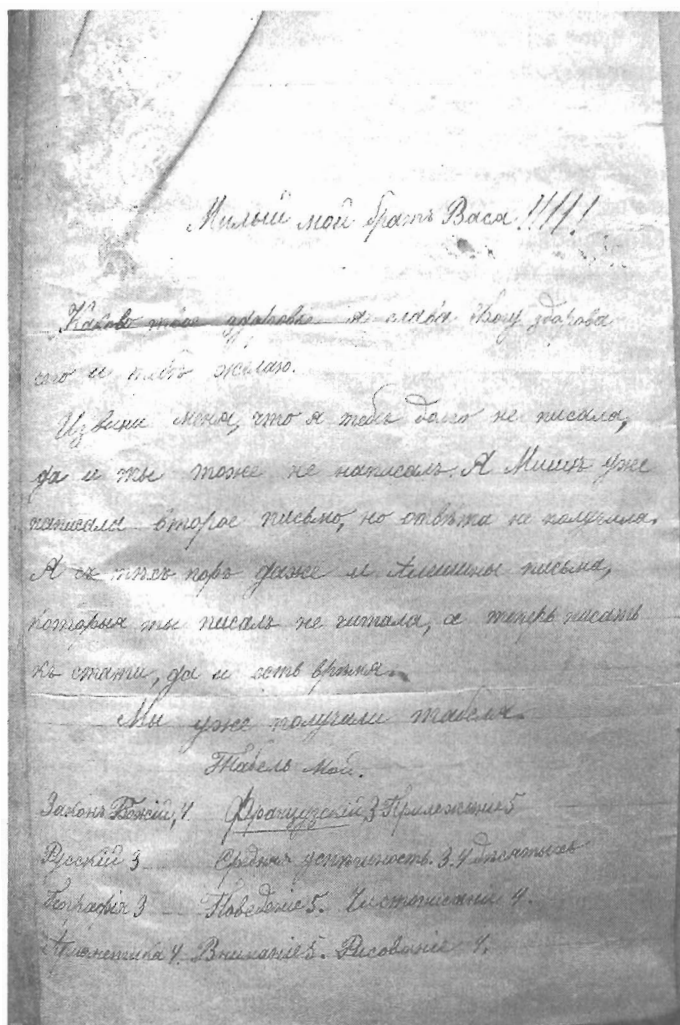 Милый мой братъ Вася!!!!!
Каково твое здоровье я слава Богу здорова
его и тебѣ желаю.
Извини меня, что я тебѣ долго не писала,
да и ты тоже не написалъ. А Мишѣ уже
написала второе письмо, но отвѣта не получила.
А съ тѣхъ поръ даже и Алешины письма,
которыя ты писалъ не читала, а теперь писать
къ стати, да и есть время.
Мы уже получали табеля.
Табель мой.
Законъ Божій, 4. Французскій 3 Прилежніе 5
Русскій 3 Средняя успѣшность. 3. 4 десятыхъ
Географія 3 Поведеніе 5. Чистописаніе 4.
Арифметика 4. Вниманіе 5. Рисованіе 4.